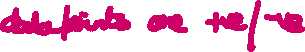 datapoints are +ve/-ve